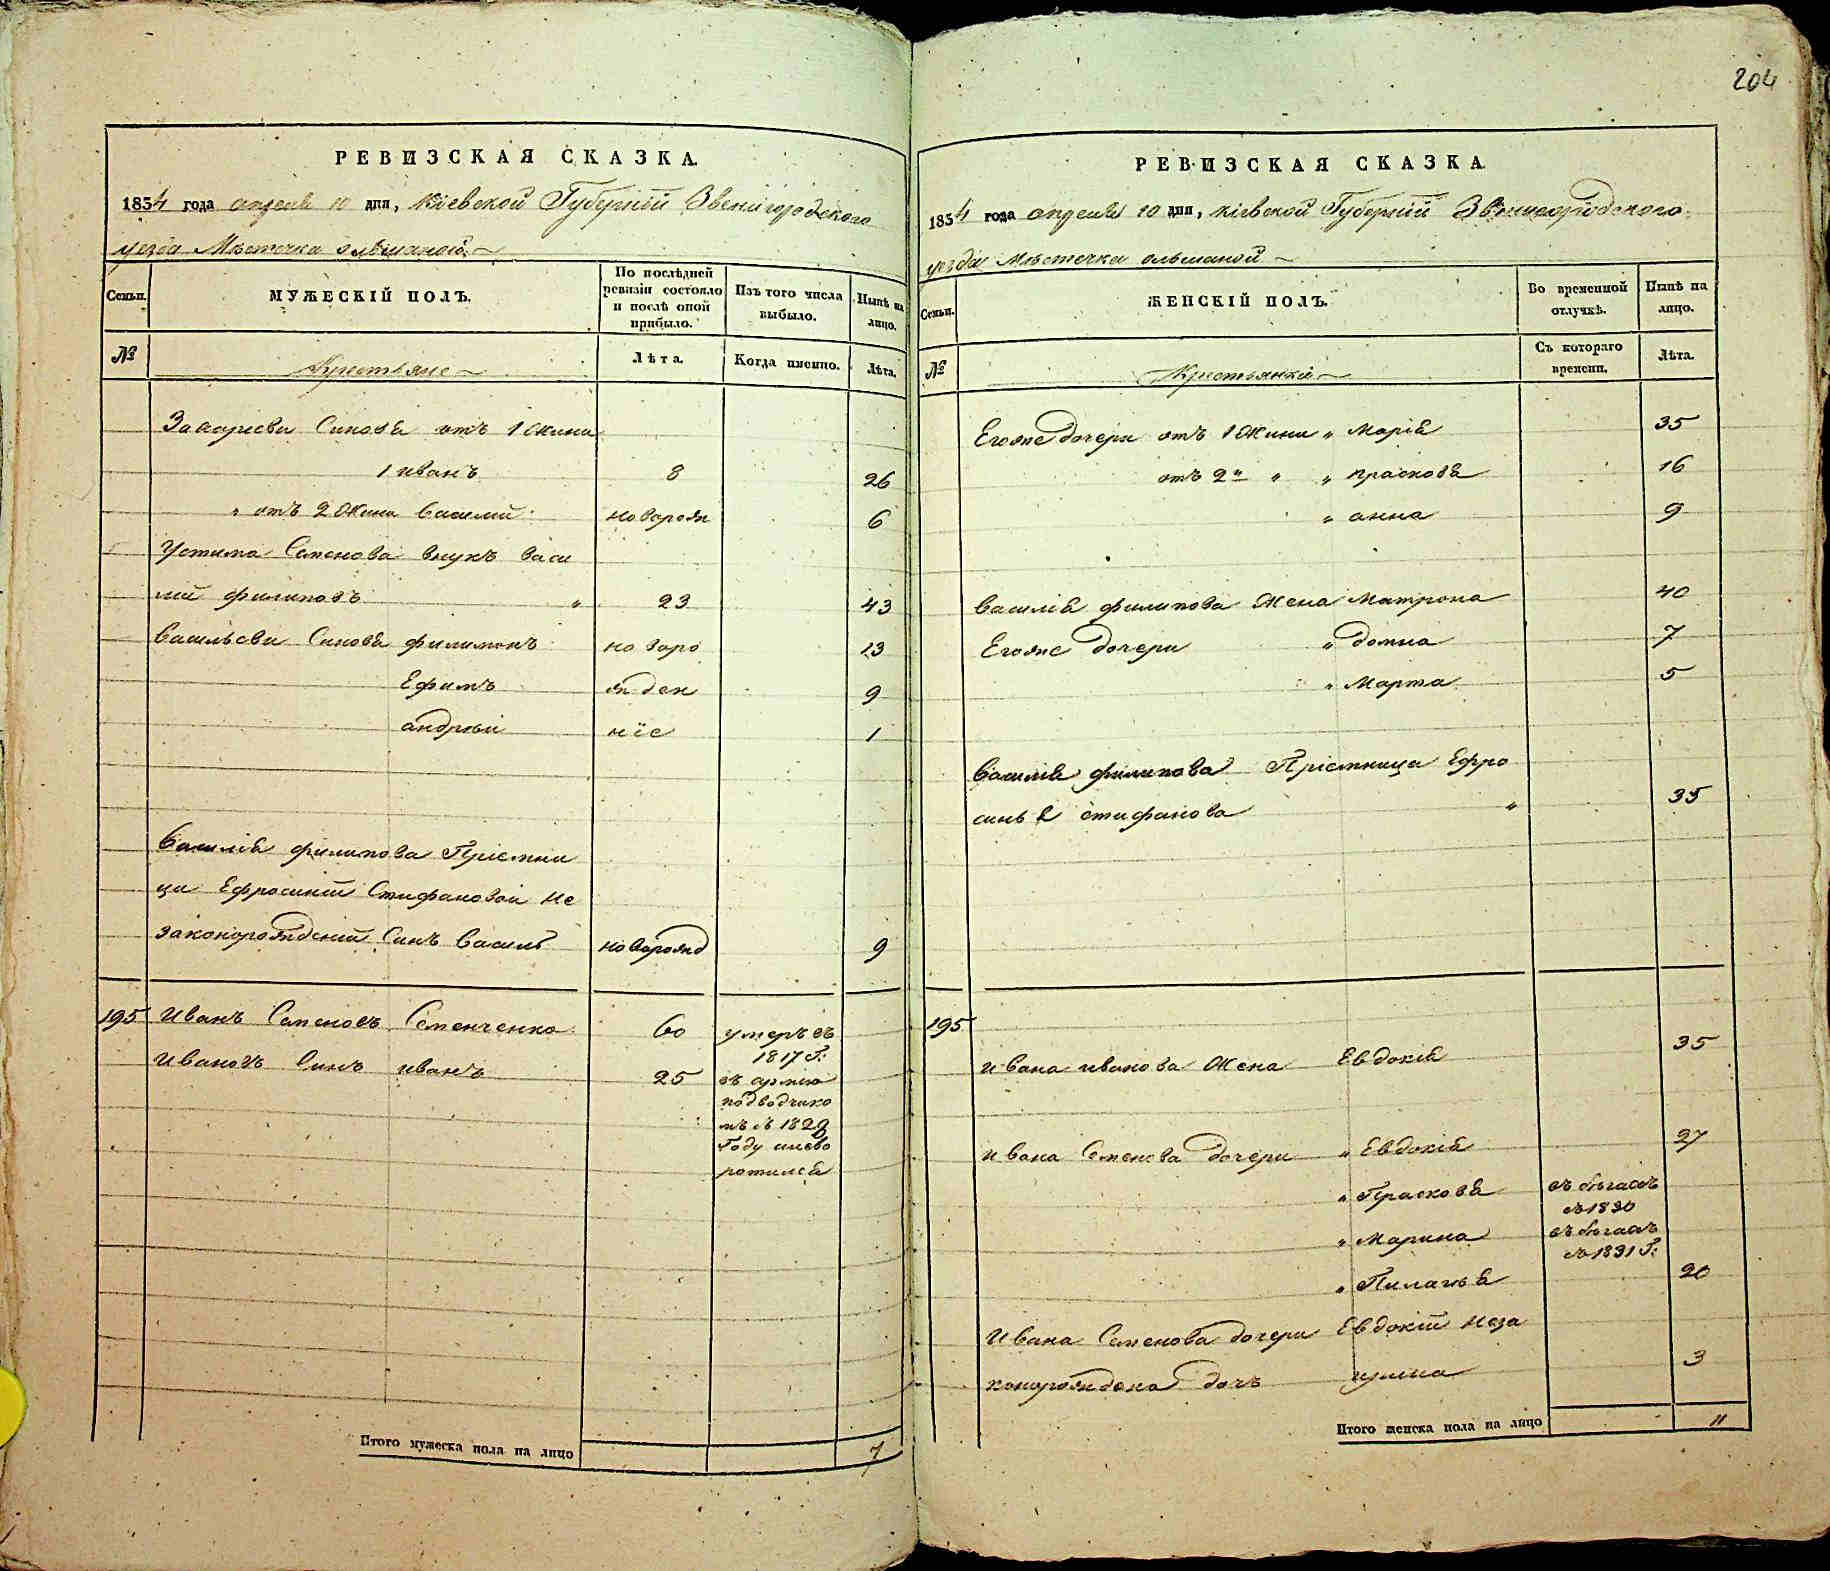 204
РЕВИЗСКАЯ СКАЗКА.
1834 года апреля 10 дня, Кіевской Губерніи Звенигородского
уезда Мѣстечка Ольшаной
Семьи.
МУЖЕСКІЙ ПОЛЪ.
По послѣдней ревизіи состояло и послѣ оной прибыло.
Изъ того числа выбыло.
Нынѣ на лицо.
№
Крестьяне
Лѣта.
Когда именно.
Лѣта.
Захариеви Синовя отъ 1 жини
1 иванъ 8 26
" отъ 2 жини Василий новорож 6
Устима Семенова внукъ Васи
лий филиповъ " 23 43
Васильеви Синовя филимонъ новоро 13
Ефимъ жден 9
андрѣй ніе 1
Василія филипова Пріемни
ци Ефросиніи Стифановой не
законорожденій Синъ Василь новорожд 9
195 Иванъ Семеновъ Семенченко 60 умеръ въ
1817 Г:
Ивановъ Синъ иванъ 25 въ армію
подводчико
мъ в 1828
Году инево
ротился
Итого мужеска пола на лицо 7
РЕВИЗСКАЯ СКАЗКА
1834 года апреля 10 дня, Кіевской Губерніи Звенигородского
уезда Мѣстечка ольшаной
Семьи.
ЖЕНСКІЙ ПОЛЪ.
Во временной отлучкѣ.
Нынѣ на лицо.
№
Крестьянки
Съ котораго времени.
Лѣта.
Егожe дочери отъ 1 жини " Марія 35
отъ 2й " " прасковя 16
" анна 9
Василія филипова Жена Матрона 40
Егоже дочери " домна 7
" Марта 5
Василія филипова Пріемница Ефро
синья стифанова " 35
195
Ивана иванова Жена Евдокія 35
Ивана Семенова дочери " Евдокія 27
" Прасковя въ бѣгахъ
съ 1830
" Марина въ бѣгахъ
съ 1831 Г:
" Пилагѣя 20
Ивана Семенова дочери Евдокіи неза
конорождена дочъ 3
Итого женска пола на лицо 11